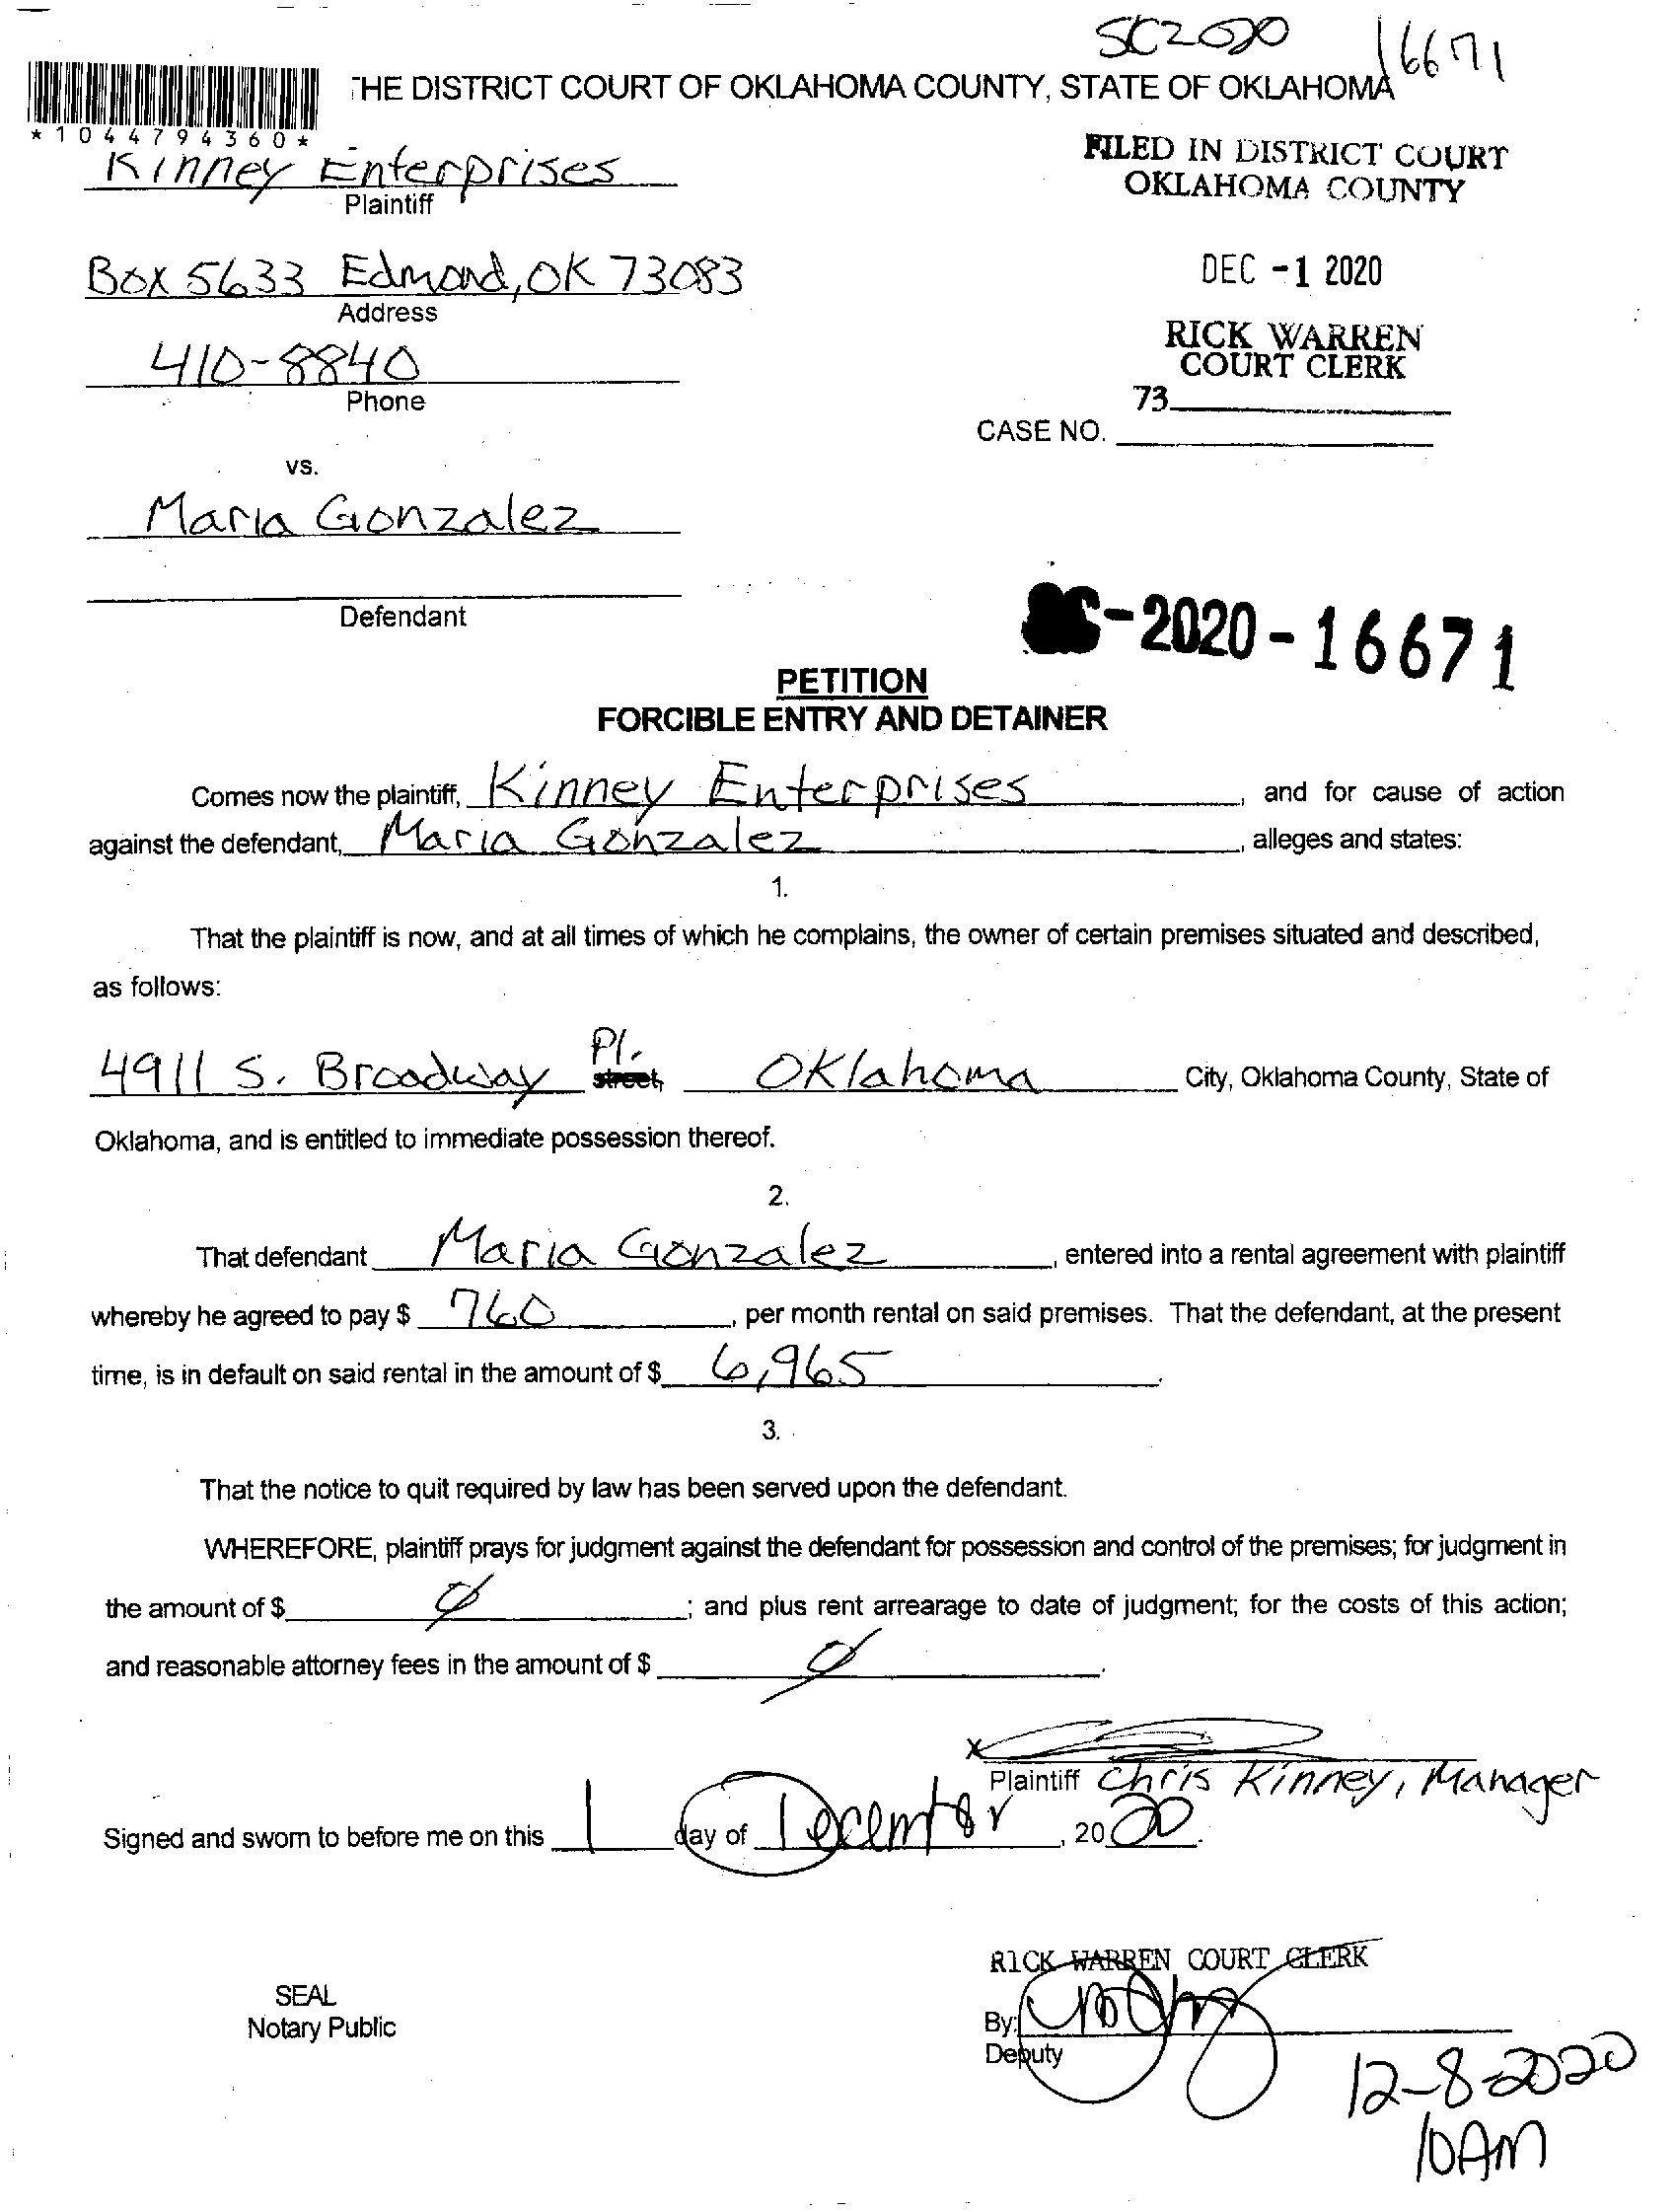 SC2020 16671
THE DISTRICT COURT OF OKLAHOMA COUNTY, STATE OF OKLAHOMA
*1044794360*
Kinney Enterprises
Plaintiff
FILED IN DISTRICT COURT
OKLAHOMA COUNTY
Box 5633 Edmond, OK 73083
Address
DEC -1 2020
410-8840
Phone
RICK WARREN
COURT CLERK
73
CASE NO.
vs.
Maria Gonzalez
Defendant
SC-2020-16671
PETITION
FORCIBLE ENTRY AND DETAINER
Comes now the plaintiff, Kinney Enterprises, and for cause of action
against the defendant, Maria Gonzalez, alleges and states:
1.
That the plaintiff is now, and at all times of which he complains, the owner of certain premises situated and described,
as follows:
4911 S. Broadway Pl. street, Oklahoma City, Oklahoma County, State of
Oklahoma, and is entitled to immediate possession thereof.
2.
That defendant Maria Gonzalez, entered into a rental agreement with plaintiff
whereby he agreed to pay $ 760, per month rental on said premises. That the defendant, at the present
time, is in default on said rental in the amount of $ 6,965.
3.
That the notice to quit required by law has been served upon the defendant.
WHEREFORE, plaintiff prays for judgment against the defendant for possession and control of the premises; for judgment in
the amount of $ Ø; and plus rent arrearage to date of judgment; for the costs of this action;
and reasonable attorney fees in the amount of $ Ø.
x
Plaintiff Chris Kinney, Manager
Signed and sworn to before me on this 1 day of December, 2020.
RICK WARREN COURT CLERK
SEAL
Notary Public
By:
Deputy
12-8-2020
10AM